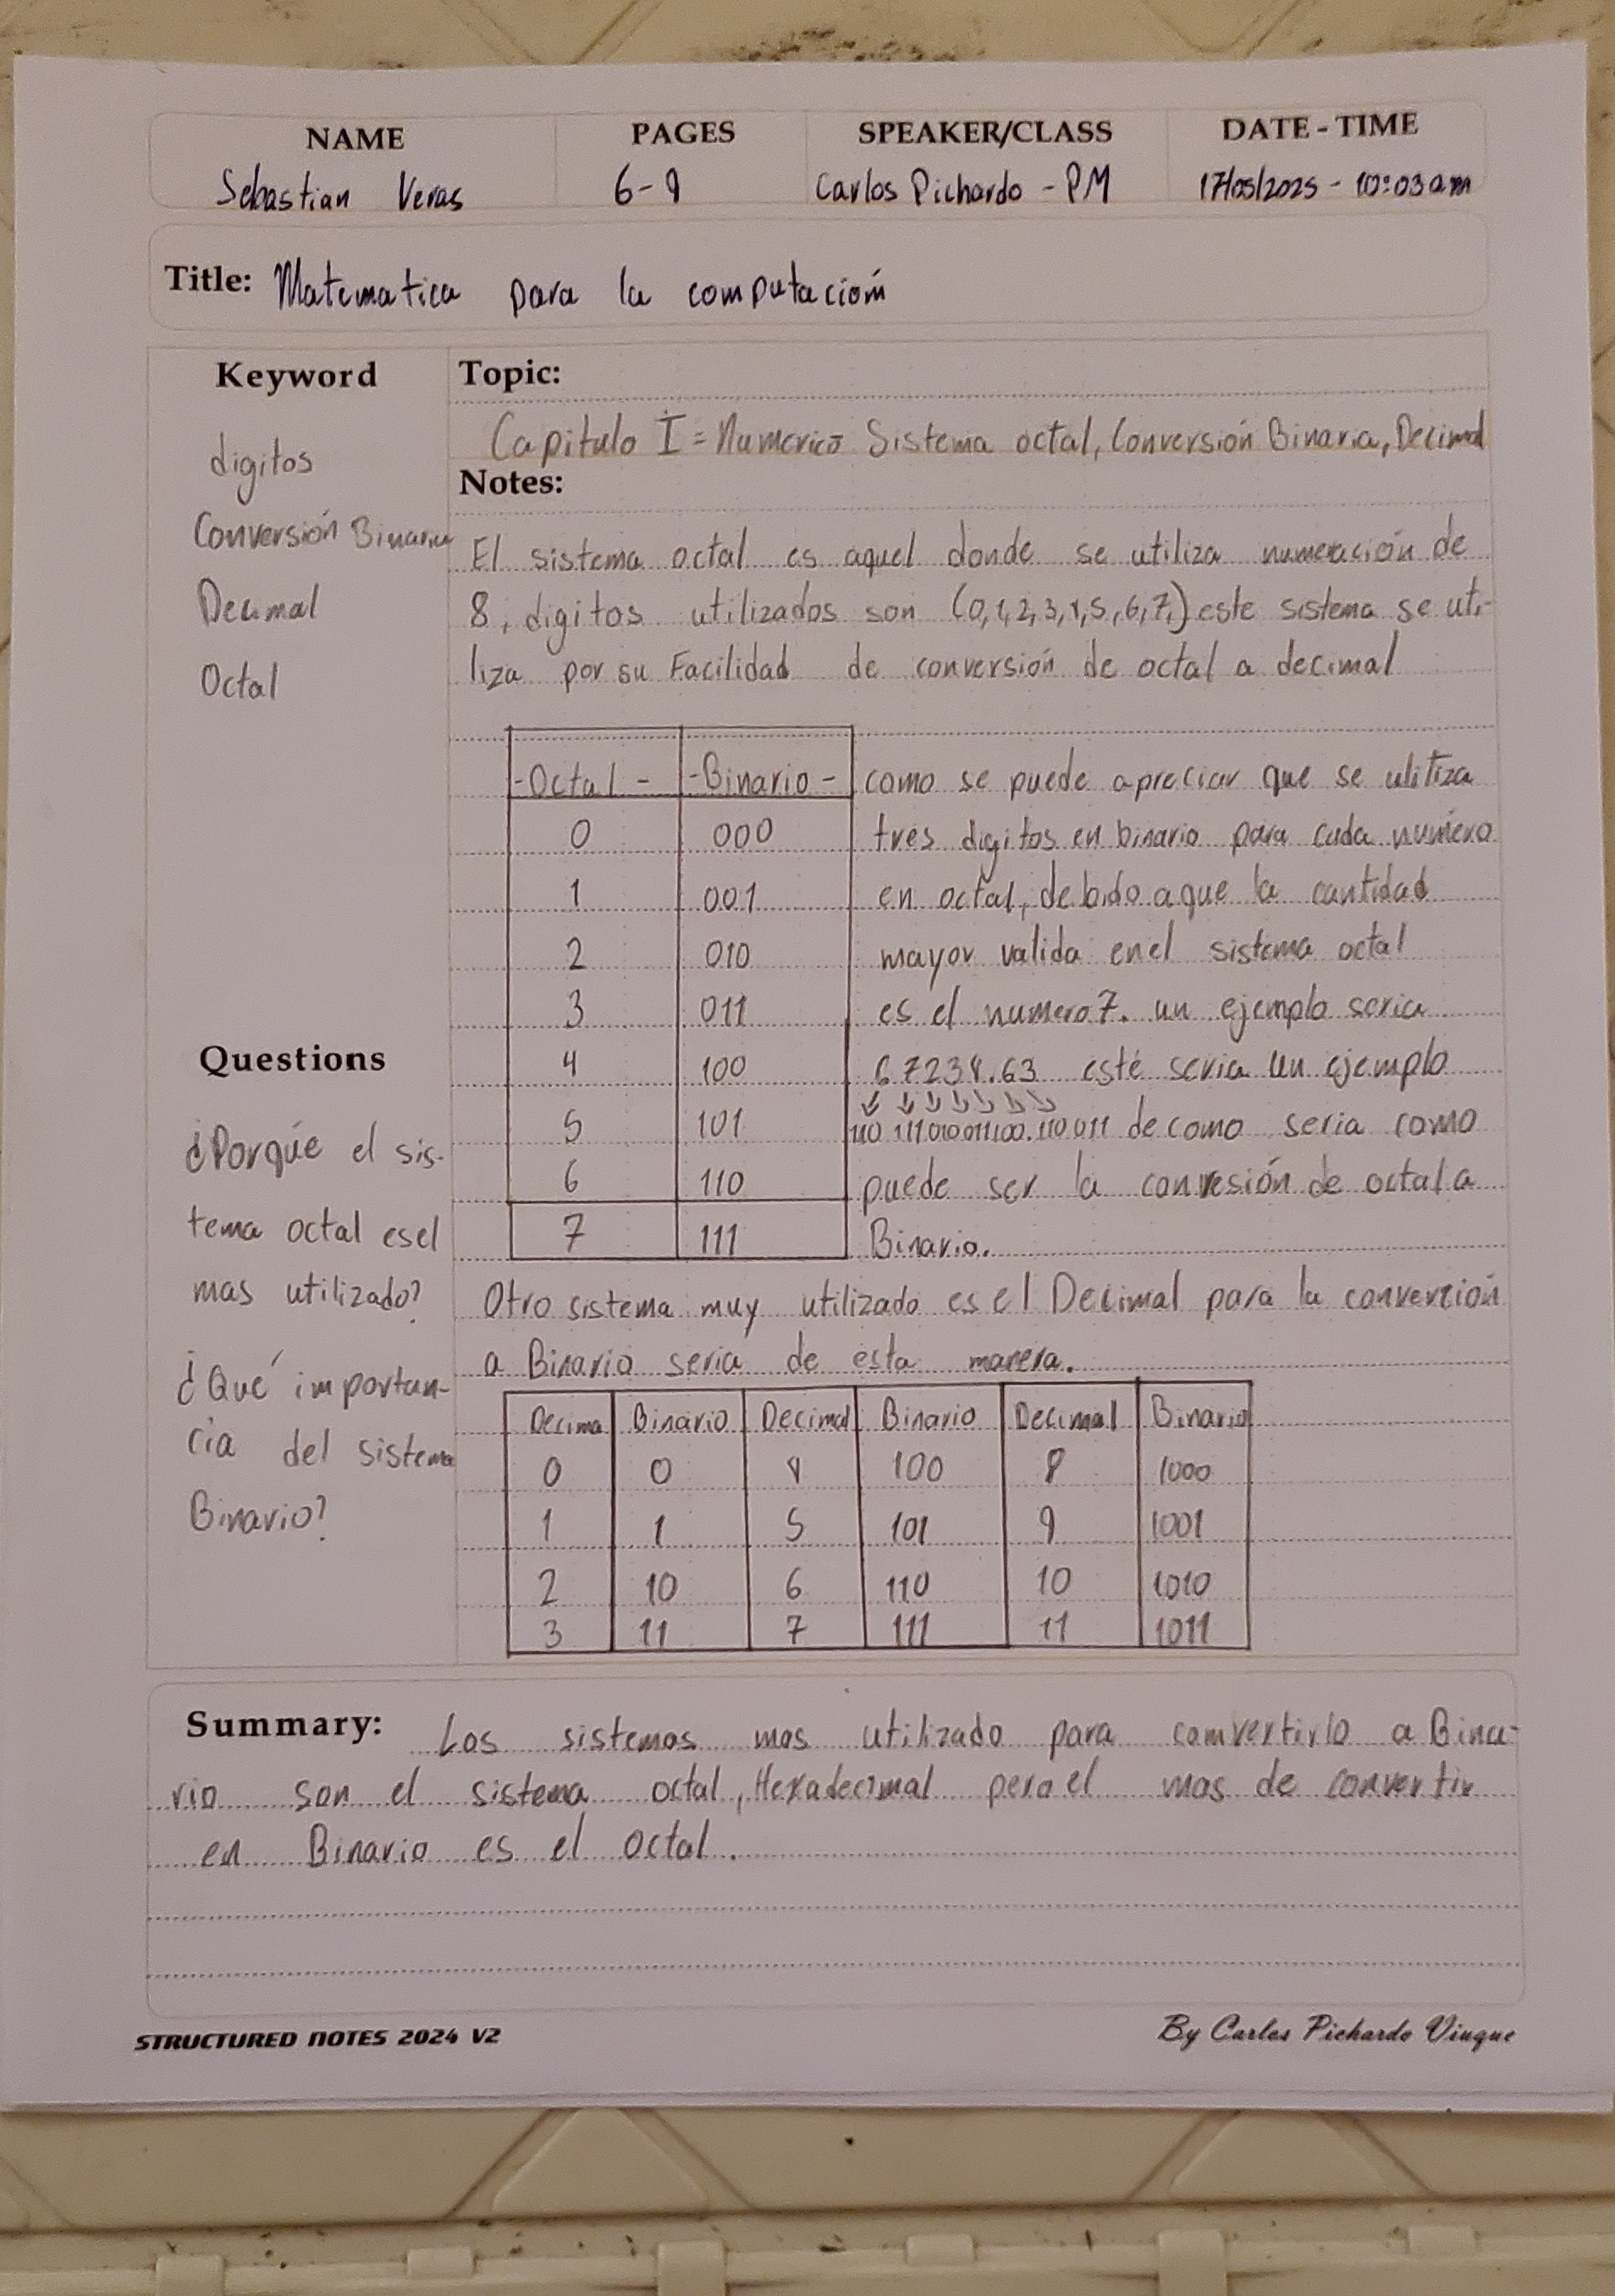 NAME PAGES SPEAKER/CLASS DATE - TIME
Sebastian Veras 6-9 Carlos Pichardo - PM 17/05/2025 - 10:03am
Title: Matematica para la computación
Keyword
digitos
Conversión Binaria
Decimal
Octal
Questions
¿Porqúe el sis-
tema octal es el
mas utilizado?
¿Qué importan-
cia del sistema
Binario?
Topic:
Capitulo I = Numerico Sistema octal, Conversión Binaria, Decimal
Notes:
El sistema octal es aquel donde se utiliza numeración de
8, digitos utilizados son (0,1,2,3,4,5,6,7,) este sistema se uti-
liza por su Facilidad de conversión de octal a decimal
-Octal- -Binario-
0 000
1 001
2 010
3 011
4 100
5 101
6 110
7 111
como se puede apreciar que se ulitiza
tres digitos en binario para cada número
en octal, debido a que la cantidad
mayor valida en el sistema octal
es el numero 7. un ejemplo seria
67234.63 esté seria un ejemplo
110 111 010 011 100. 110 011 de como seria como
puede ser la conresión de octal a
Binario.
Otro sistema muy utilizado es el Decimal para la converción
a Binario seria de esta manera.
Decima Binario Decimal Binario Decimal Binario
0 0 4 100 8 1000
1 1 5 101 9 1001
2 10 6 110 10 1010
3 11 7 111 11 1011
Summary: Los sistemas mas utilizado para comvertirlo a Bina-
rio son el sistema octal, Hexadecimal pero el mas de convertir
en Binario es el octal.
STRUCTURED NOTES 2024 V2 By Carlos Pichardo Viuque